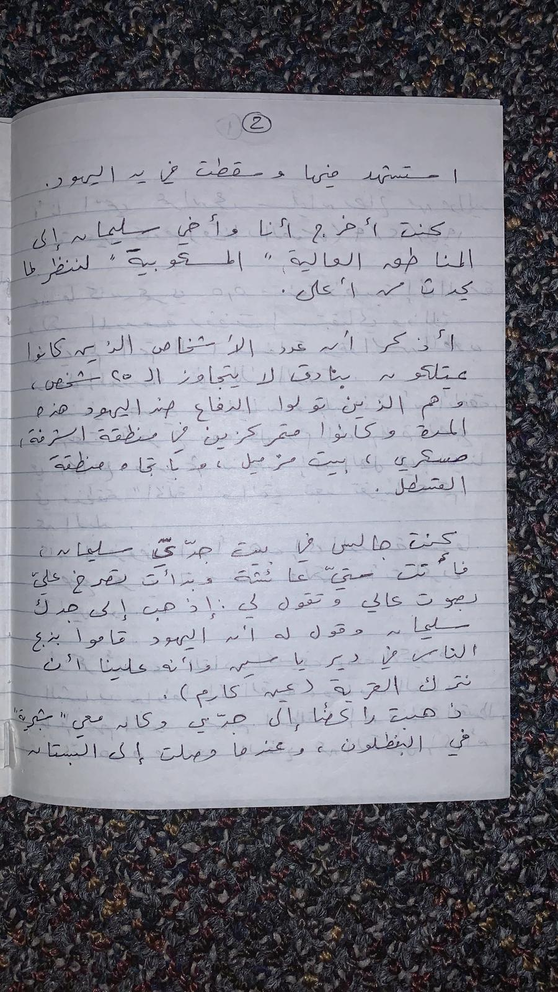 2
استشهد فيها وسقطت في يد اليهود.
كنت أخرج أنا وأخي سليمان إلى
المناطق العالية "المسكوبية" لننظر لما
يحدث من أعلى.
أذكر أن عدد الأشخاص الذين كانوا
يمتلكون بنادق لا يتجاوز الـ ٢٥ شخص،
وهم الذين تولوا الدفاع ضد اليهود هذه
المدة وكانوا متمركزين في منطقة الشرفة،
بيت مزميل، وباتجاه منطقة
القسطل.
كنت جالس في بيت جدّي سليمان،
فأتت ستيّ عائشة وبدأت تصرخ عليّ
بصوت عالي وتقول لي: إذهب إلى جدك
سليمان وقول له أن اليهود قاموا بذبح
الناس في دير ياسين وأنه علينا أن
نترك القرية (عين كارم).
ذهبت راكضًا إلى جدّي وكان معي "شبرية"
في البنطلون، وعندما وصلت إلى البستان